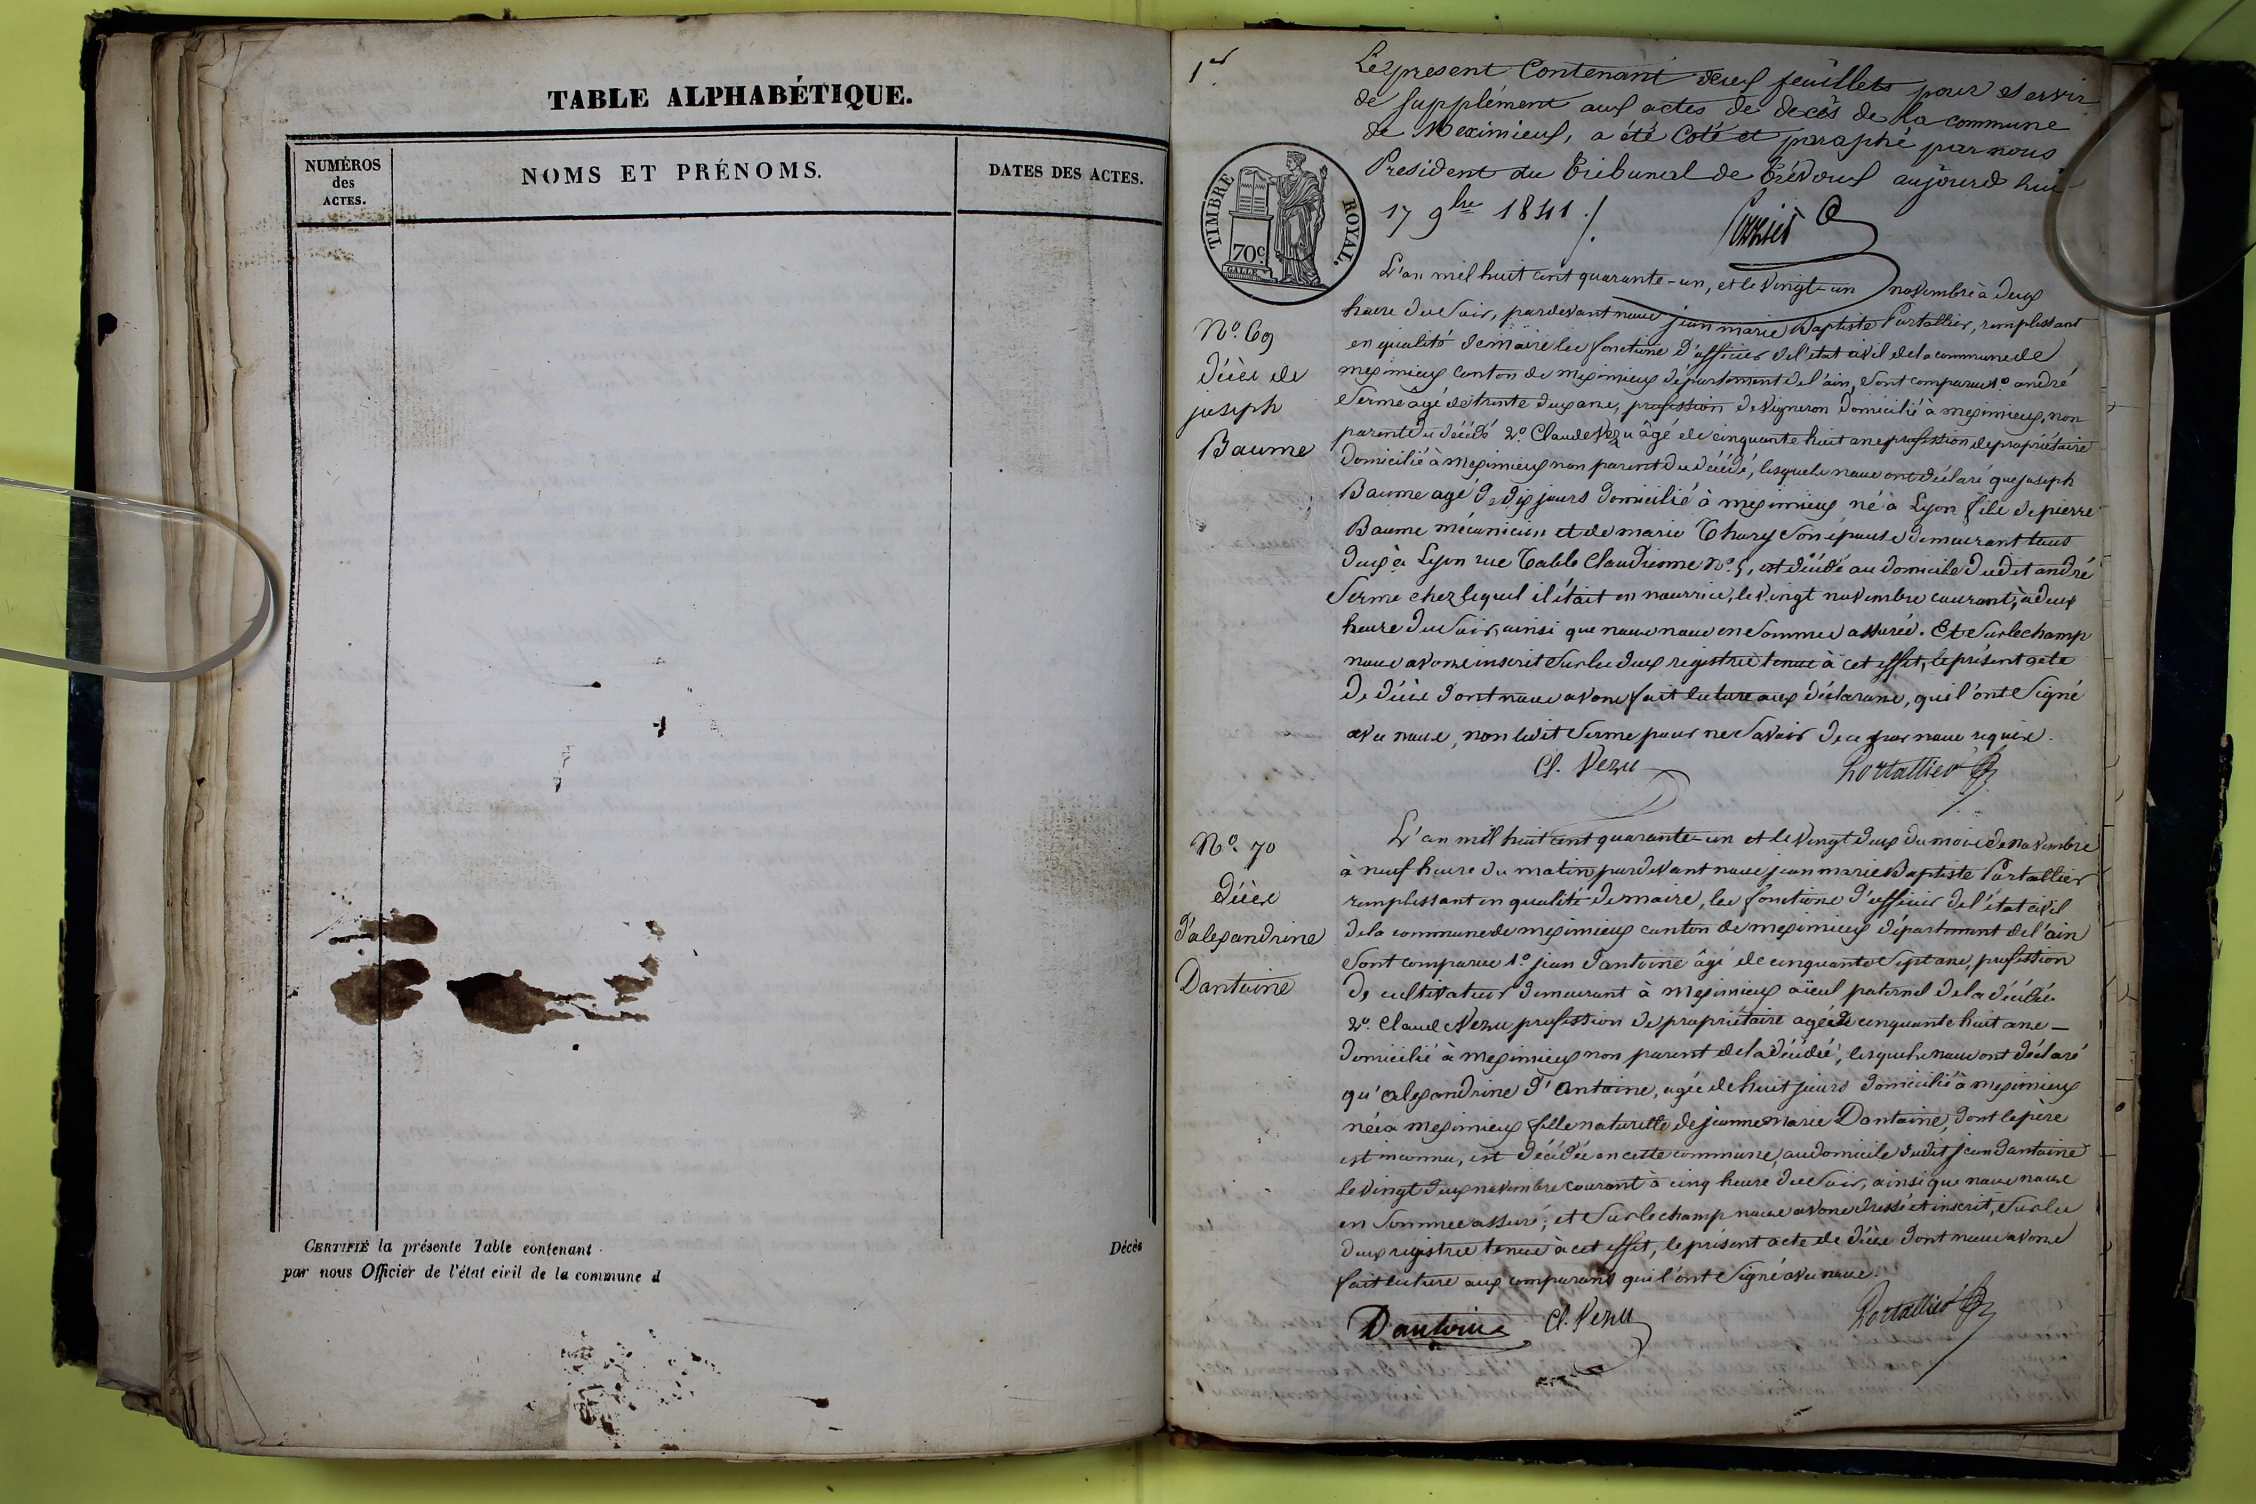 TABLE ALPHABÉTIQUE.
NUMÉROS
des
ACTES.
NOMS ET PRÉNOMS.
DATES DES ACTES.
CERTIFIÉ la présente Table contenant
Décès
par nous Officier de l'état civil de la commune d
1er
Le present Contenant deux feuillets pour servir
de supplément aux actes de decès de la commune
de Meximieux, a été Coté et paraphé par nous
President du Tribunal de Trévoux aujourd hui
17 9bre 1841 ./.
TIMBRE ROYAL.
70c.
L'an mil huit cent quarante-un, et le vingt-un novembre à deux
heure du soir, pardevant nous jean marie Baptiste Portallier, remplissant
en qualité de maire les fonctions d'officier de l'état civil de la commune de
meximieux canton de meximieux département de l'ain, sont comparus 1o andré
Serme âgé de trente deux ans, profession de vigneron domicilié à meximieux, non
parent du décédé 2o. Claude Vezu âgé de cinquante huit ans profession de propriétaire
domicilié à meximieux non parent du décédé, lesquels nous ont déclaré que joseph
Baume agé de dix jours domicilié à meximieux né à Lyon fils de pierre
Baume mécanicien et de marie Thary son épouse demeurant tous
deux à Lyon rue Table Claudienne No. 5, est décédé au domicile dudit andré
Serme chez lequel il était en nourrice, le vingt novembre courant, à deux
heure du soir, ainsi que nous nous en sommes assurés. Et sur le champ
nous avons inscrit sur les deux registres tenus à cet effet, le présent acte
de décès dont nous avons fait lecture aux déclarans, qui l'ont signé
avec nous, non ledit Serme pour ne savoir de ce par nous requis.
No. 69
décès de
joseph
Baume
Cl. Vezu
Portallier
L'an mil huit cent quarante-un et le vingt deux du mois de novembre
à neuf heure du matin pardevant nous jean marie Baptiste Portallier
remplissant en qualité de maire, les fonctions d'officier de l'état civil
de la commune de meximieux canton de meximieux département de l'ain
sont comparus 1o jean Dantoine âgé de cinquante sept ans, profession
de cultivateur demeurant à meximieux aïeul paternel de la décédée
2o. Claude Vezu profession de propriétaire agé de cinquante huit ans —
domicilié à meximieux non parent de la décédée, lesquels nous ont déclaré
qu'alexandrine d'antoine, agée de huit jours domicilié à meximieux
née à meximieux fille naturelle de jeanne marie Dantoine, dont le père
est inconnu, est décédée en cette commune, au domicile dudit jean dantoine
le vingt deux novembre courant à cinq heure du soir, ainsi que nous nous
en sommes assuré; et sur le champ nous avons dressé et inscrit, sur les
deux registres tenus à cet effet, le présent acte de décès dont nous avons
fait lecture aux comparans qui l'ont signé avec nous.
No. 70
décès
d'alexandrine
Dantoine
Dantoine
Cl. Vezu
Portallier